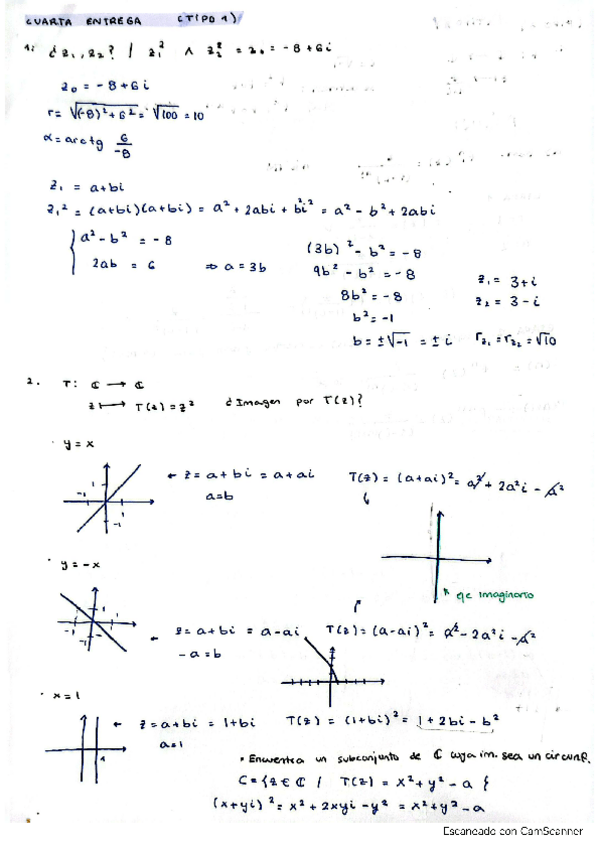 CUARTA ENTREGA (TIPO 1)
1. ¿ z₁, z₂ ? / z₁² ∧ z₂² = z₀ = -8 + 6i
z₀ = -8 + 6i
r = √((-8)² + 6²) = √100 = 10
α = arctg 6/-8
z₁ = a + bi
z₁² = (a+bi)(a+bi) = a² + 2abi + b²i² = a² - b² + 2abi
{ a² - b² = -8
2ab = 6 ⇒ a = 3b
(3b)² - b² = -8
9b² - b² = -8
8b² = -8
b² = -1
b = ±√-1 = ± i
z₁ = 3 + i
z₂ = 3 - i
r_z₁ = r_z₂ = √10
2. T: ℂ → ℂ
z ↦ T(z) = z² ¿Imagen por T(z)?
· y = x
-1 1
-1
← z = a + bi = a + ai T(z) = (a+ai)² = a² + 2a²i - a²
a = b
eje imaginario
· y = -x
-1 1
-1
← z = a + bi = a - ai T(z) = (a-ai)² = a² - 2a²i - a²
-a = b
· x = 1
1
← z = a + bi = 1 + bi T(z) = (1+bi)² = 1 + 2bi - b²
a = 1
* Encuentra un subconjunto de ℂ cuya im. sea un circunf.
C = { z ∈ ℂ / T(z) = x² + y² - a {
(x+yi)² = x² + 2xyi - y² = x² + y² - a
Escaneado con CamScanner